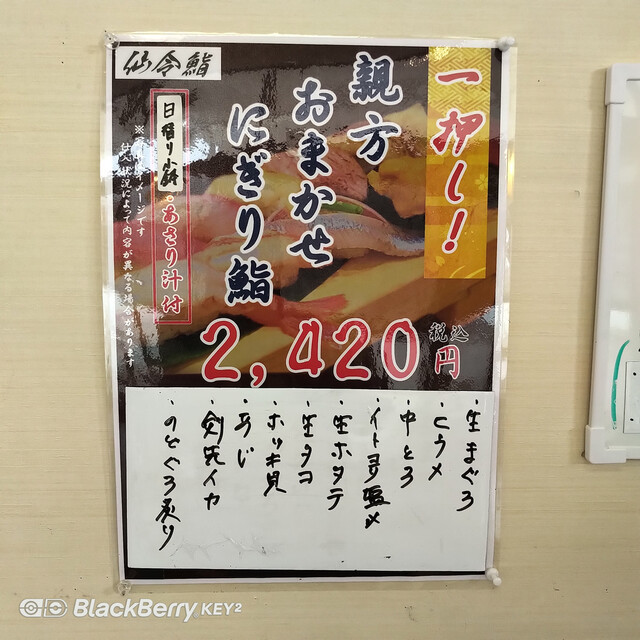 仙令鮨
一押し!
親方
おまかせ
にぎり鮨
日替り小鉢・あさり汁付
※写真はイメージです
仕入状況によって内容が異なる場合があります
2,420円
税込
・生まぐろ
・ヒラメ
・中とろ
・イトヨリ塩〆
・生ホタテ
・生タコ
・ホッキ貝
・あじ
・剣先イカ
・のどぐろ炙り
BlackBerry KEY2